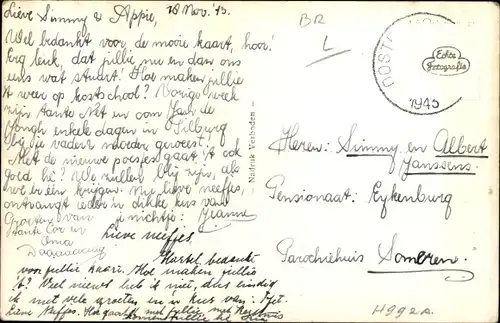 Lieve Simmy & Appie,
18 Nov. '45.
Wel bedankt voor de mooie kaart, hoor!
Erg leuk, dat jullie nu en dan ons
eens wat stuurt! Hoe maken jullie
't weer op kostschool? Vorige week
zijn tante Net en oom Jaap de
Jongh enkele dagen in Tilburg
bij je vaders moeder geweest.
Met de nieuwe poesjes gaat 't ook
goed hè? We zullen blij zijn, als
we er één krijgen. Nu lieve neefjes,
ontvangt ieder 'n dikke kus van
je nichtje:
Groeten van
tante Cor en
Oma
Daaaaaaag
Lieve neefjes,
Hartel. bedankt
voor jullie kaart. Hoe maken jullie
't? Veel nieuws heb ik niet, dus eindig
ik met vele groeten en 'n kus van:
Lieve neefjes. Hoe gaat het met jullie, met Kerstmis
komen jullie
BR
L
1945
Echte
Fotografie
Nadruk Verboden
Heren: Simmy en Albert
Janssens.
Pensionaat: Eykenburg
Parochiehuis Someren.
H992A